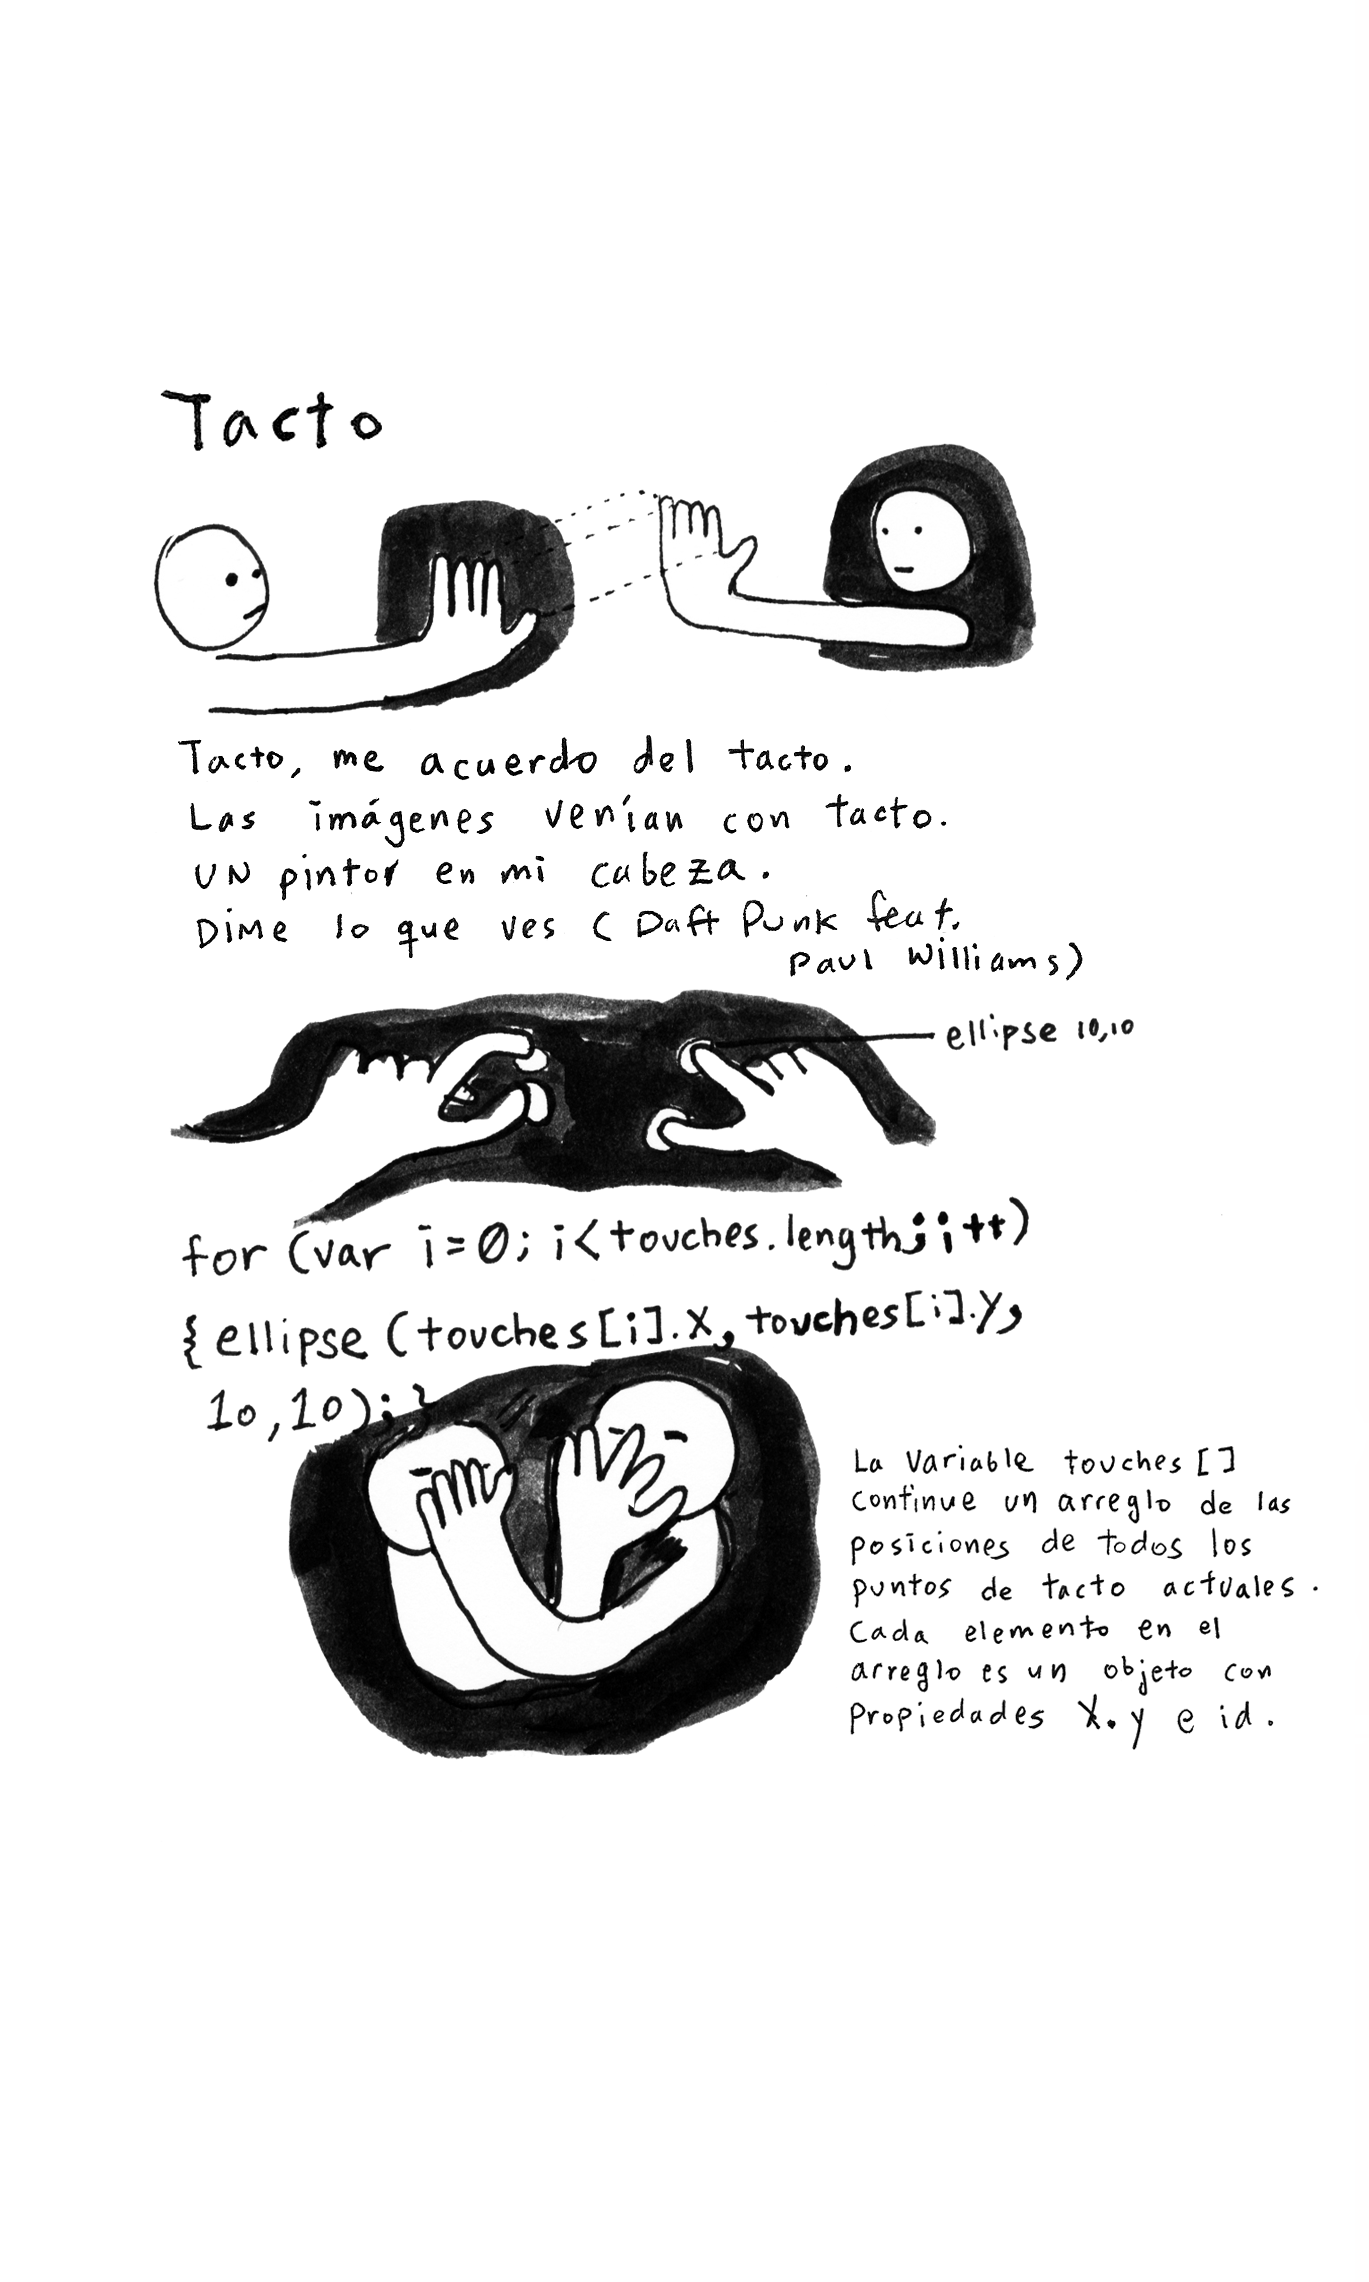 Tacto
Tacto, me acuerdo del tacto.
Las imágenes venían con tacto.
UN pintor en mi cabeza.
Dime lo que ves ( Daft Punk feat.
Paul Williams)
ellipse 10,10
for (var i=0; i<touches.length; i++)
{ ellipse (touches[i].x, touches[i].y,
10,10); }
La variable touches []
continue un arreglo de las
posiciones de todos los
puntos de tacto actuales.
Cada elemento en el
arreglo es un objeto con
propiedades X. y e id.